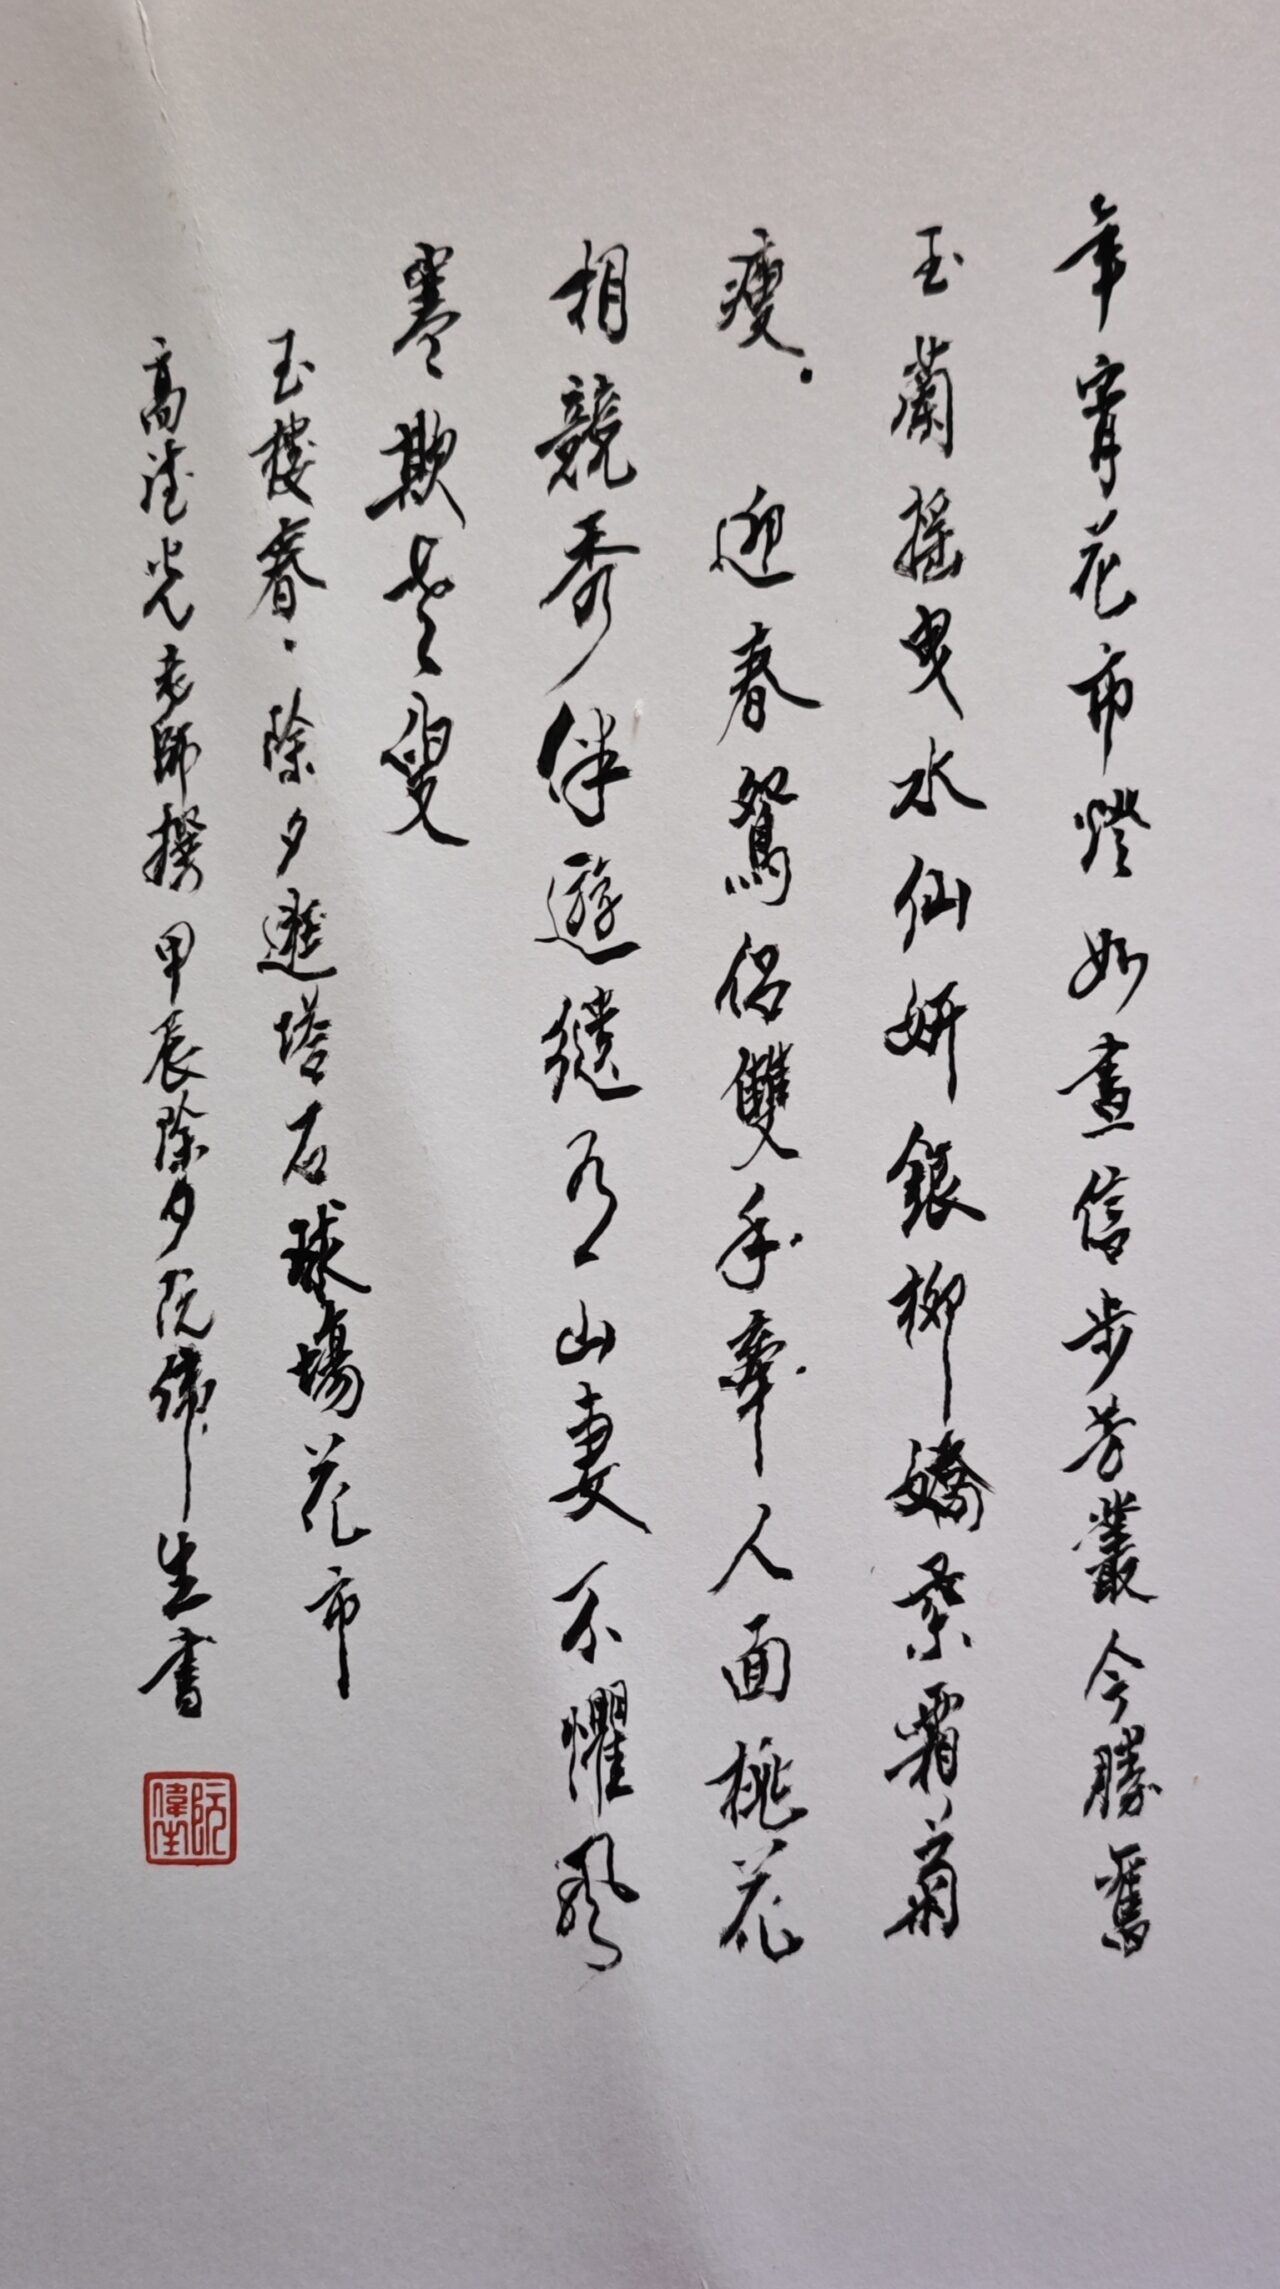 年宵花市燈如晝信步芳叢今勝舊
玉蘭搖曳水仙妍銀柳嬌柔霜菊
瘦。 迎春鴛侶雙手牽人面桃花
相競秀伴遊縫有山妻不懼風
寒欺老叟
玉樓春·除夕遊塔石球場花市
高達光老師撰甲辰除夕阮偉生書
阮偉生